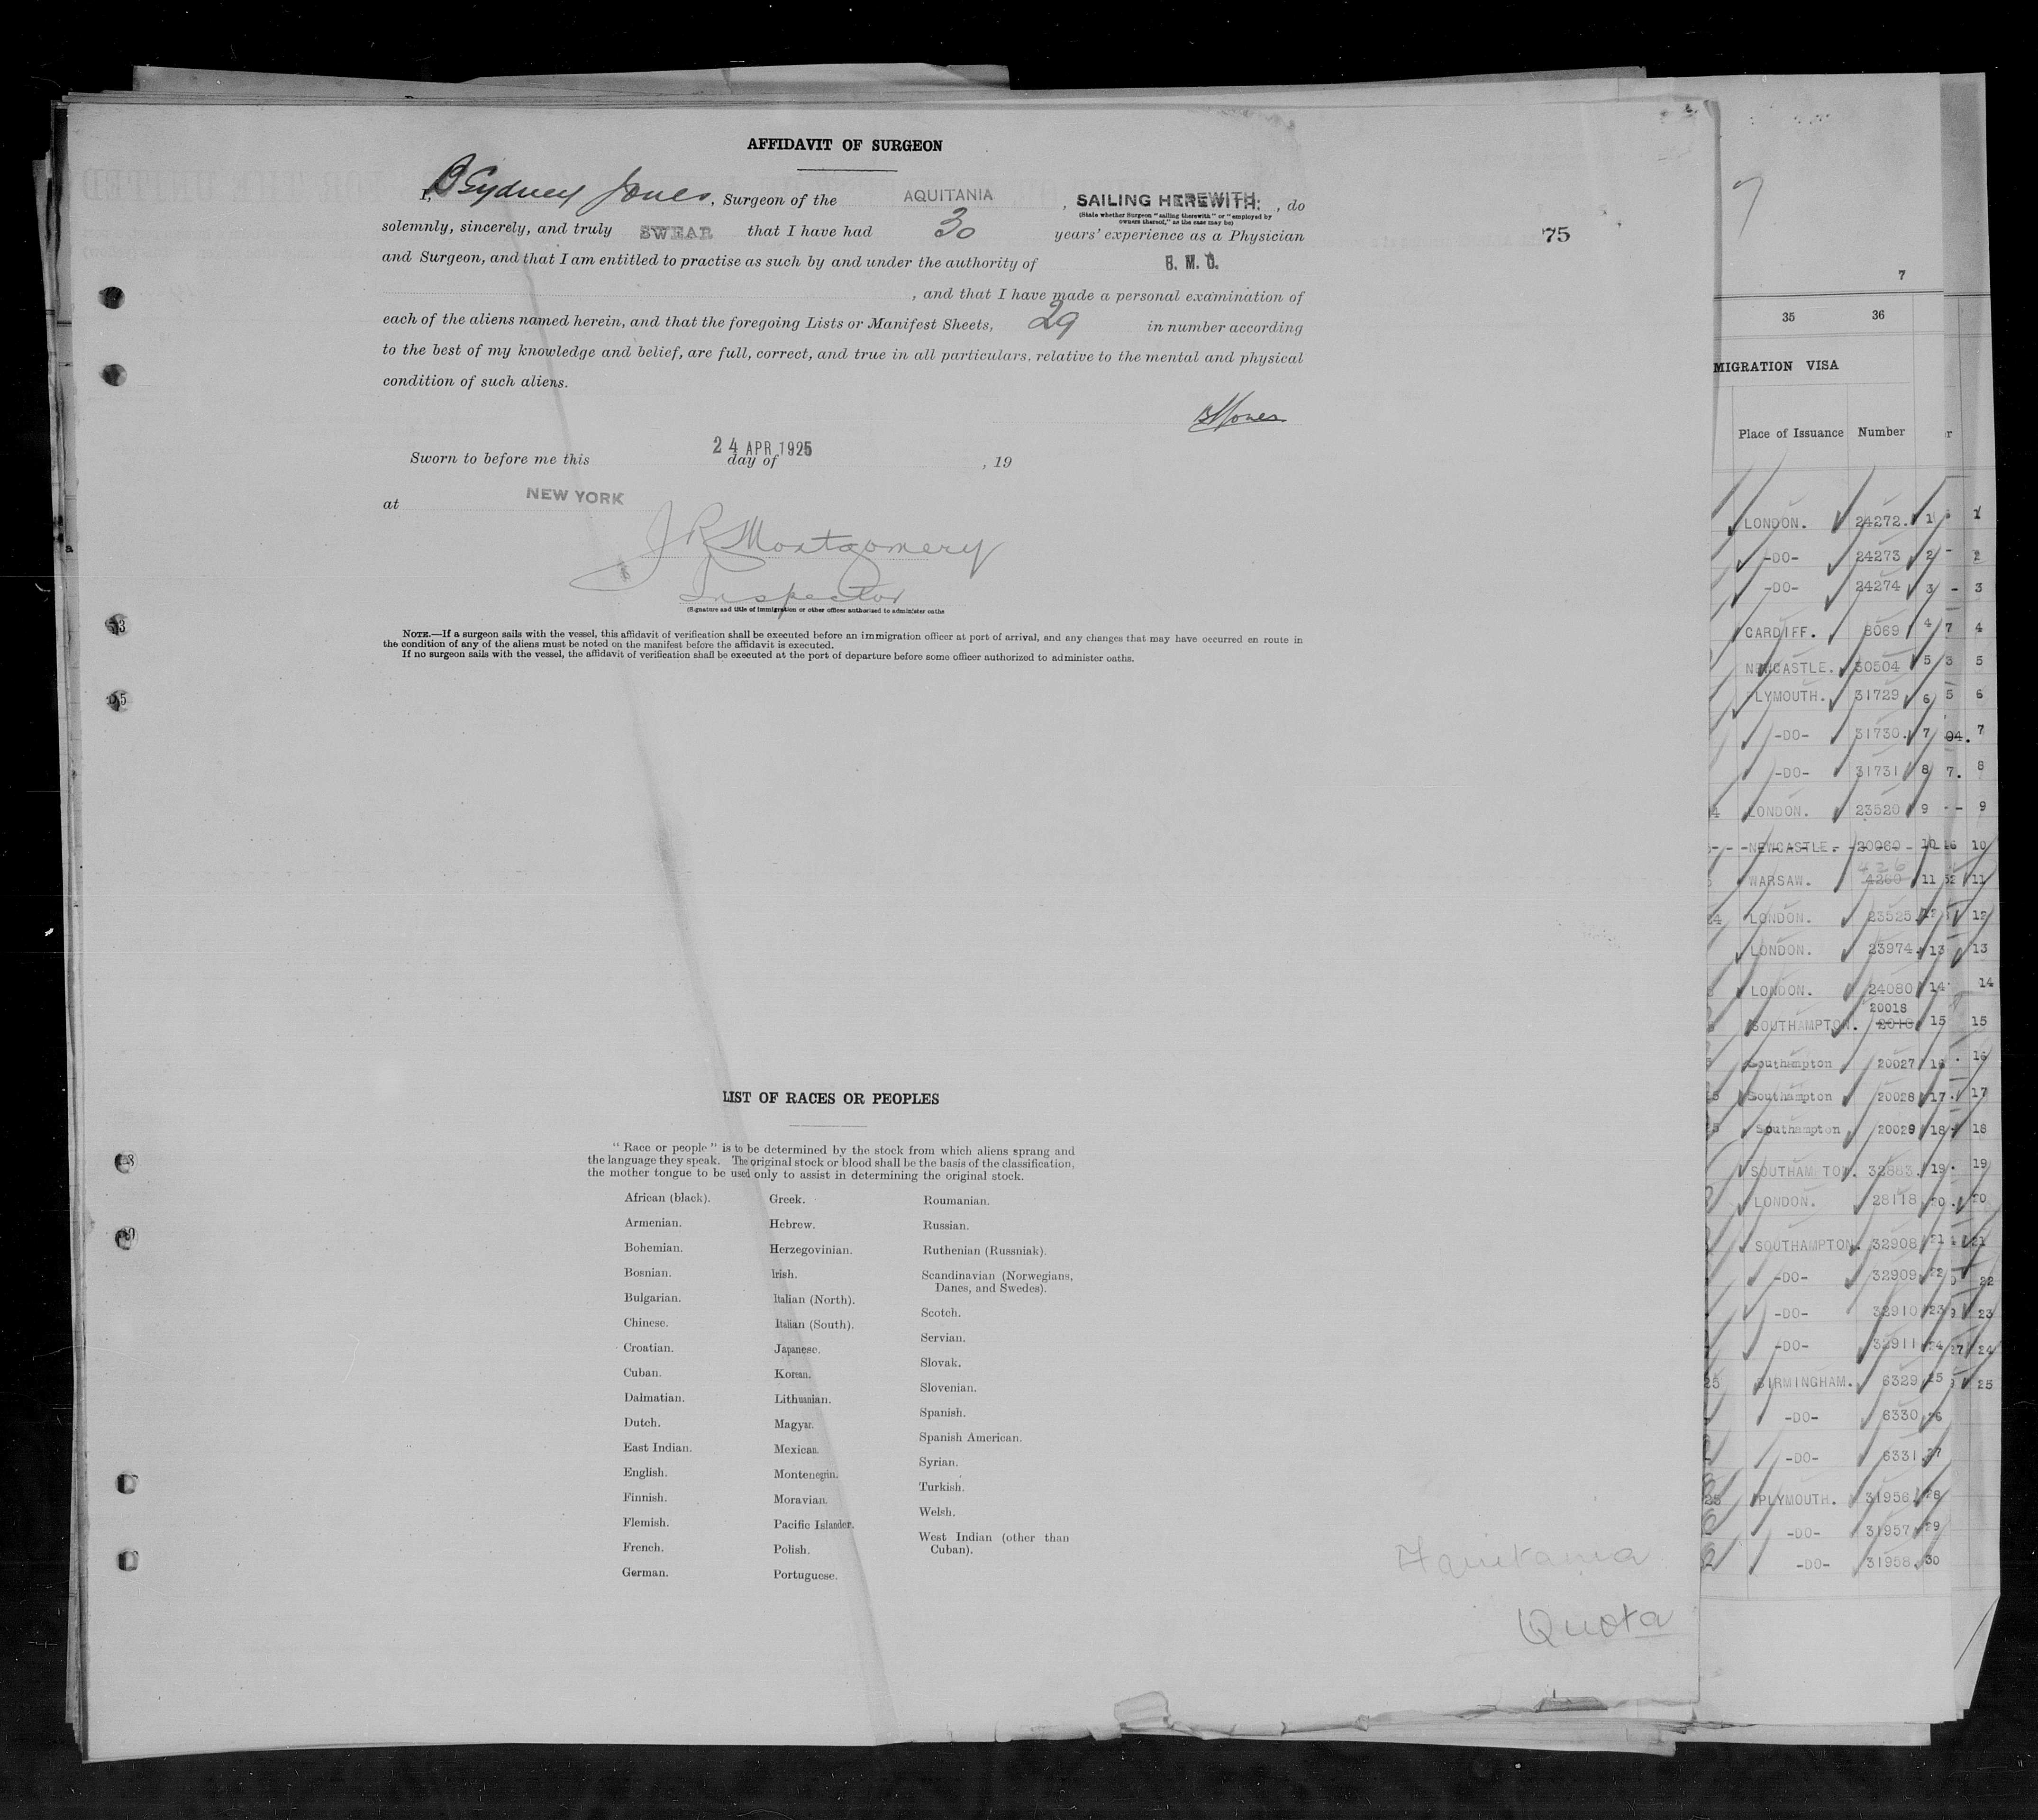 AFFIDAVIT OF SURGEON
I, B Sydney Jones, Surgeon of the AQUITANIA , SAILING HEREWITH: , do
(State whether Surgeon "sailing therewith" or "employed by
owners thereof," as the case may be)
solemnly, sincerely, and truly SWEAR that I have had 30 years' experience as a Physician
75
and Surgeon, and that I am entitled to practise as such by and under the authority of B. M. C.
, and that I have made a personal examination of
each of the aliens named herein, and that the foregoing Lists or Manifest Sheets, 29 in number according
to the best of my knowledge and belief, are full, correct, and true in all particulars, relative to the mental and physical
condition of such aliens.
BSJones
Sworn to before me this 24 APR 1925 day of , 19
at NEW YORK
J R Montgomery
Inspector
(Signature and title of immigration or other officer authorised to administer oaths
NOTE.—If a surgeon sails with the vessel, this affidavit of verification shall be executed before an immigration officer at port of arrival, and any changes that may have occurred en route in
the condition of any of the aliens must be noted on the manifest before the affidavit is executed.
If no surgeon sails with the vessel, the affidavit of verification shall be executed at the port of departure before some officer authorized to administer oaths.
LIST OF RACES OR PEOPLES
"Race or people" is to be determined by the stock from which aliens sprang and
the language they speak. The original stock or blood shall be the basis of the classification,
the mother tongue to be used only to assist in determining the original stock.
African (black).
Armenian.
Bohemian.
Bosnian.
Bulgarian.
Chinese.
Croatian.
Cuban.
Dalmatian.
Dutch.
East Indian.
English.
Finnish.
Flemish.
French.
German.
Greek.
Hebrew.
Herzegovinian.
Irish.
Italian (North).
Italian (South).
Japanese.
Korean.
Lithuanian.
Magyar.
Mexican.
Montenegrin.
Moravian.
Pacific Islander.
Polish.
Portuguese.
Roumanian.
Russian.
Ruthenian (Russniak).
Scandinavian (Norwegians,
Danes, and Swedes).
Scotch.
Servian.
Slovak.
Slovenian.
Spanish.
Spanish American.
Syrian.
Turkish.
Welsh.
West Indian (other than
Cuban).
Aquitania
Quota
7
7
35 36
MIGRATION VISA
Place of Issuance Number
LONDON. 24272. 1 1
-DO- 24273 2 2
-DO- 24274 3 3
CARDIFF. 8069 4 4
NEWCASTLE. 30504 5 5
PLYMOUTH. 31729 6 6
-DO- 31730. 7 7
-DO- 31731 8 8
LONDON. 23520 9 9
NEWCASTLE. 20060 10 10
426
WARSAW. 4260 11 11
LONDON. 23525 12 12
LONDON. 23974 13 13
LONDON. 24080 14 14
20018
SOUTHAMPTON. 2018 15 15
Southampton 20027 16 16
Southampton 20028 17 17
Southampton 20029 18 18
SOUTHAMPTON. 32883. 19 19
LONDON. 28118 20 20
SOUTHAMPTON. 32908 21 21
-DO- 32909 22 22
-DO- 32910 23 23
-DO- 32911 24 24
BIRMINGHAM. 6329 25 25
-DO- 6330 26
-DO- 6331 27
PLYMOUTH. 31956 28
-DO- 31957 29
-DO- 31958 30